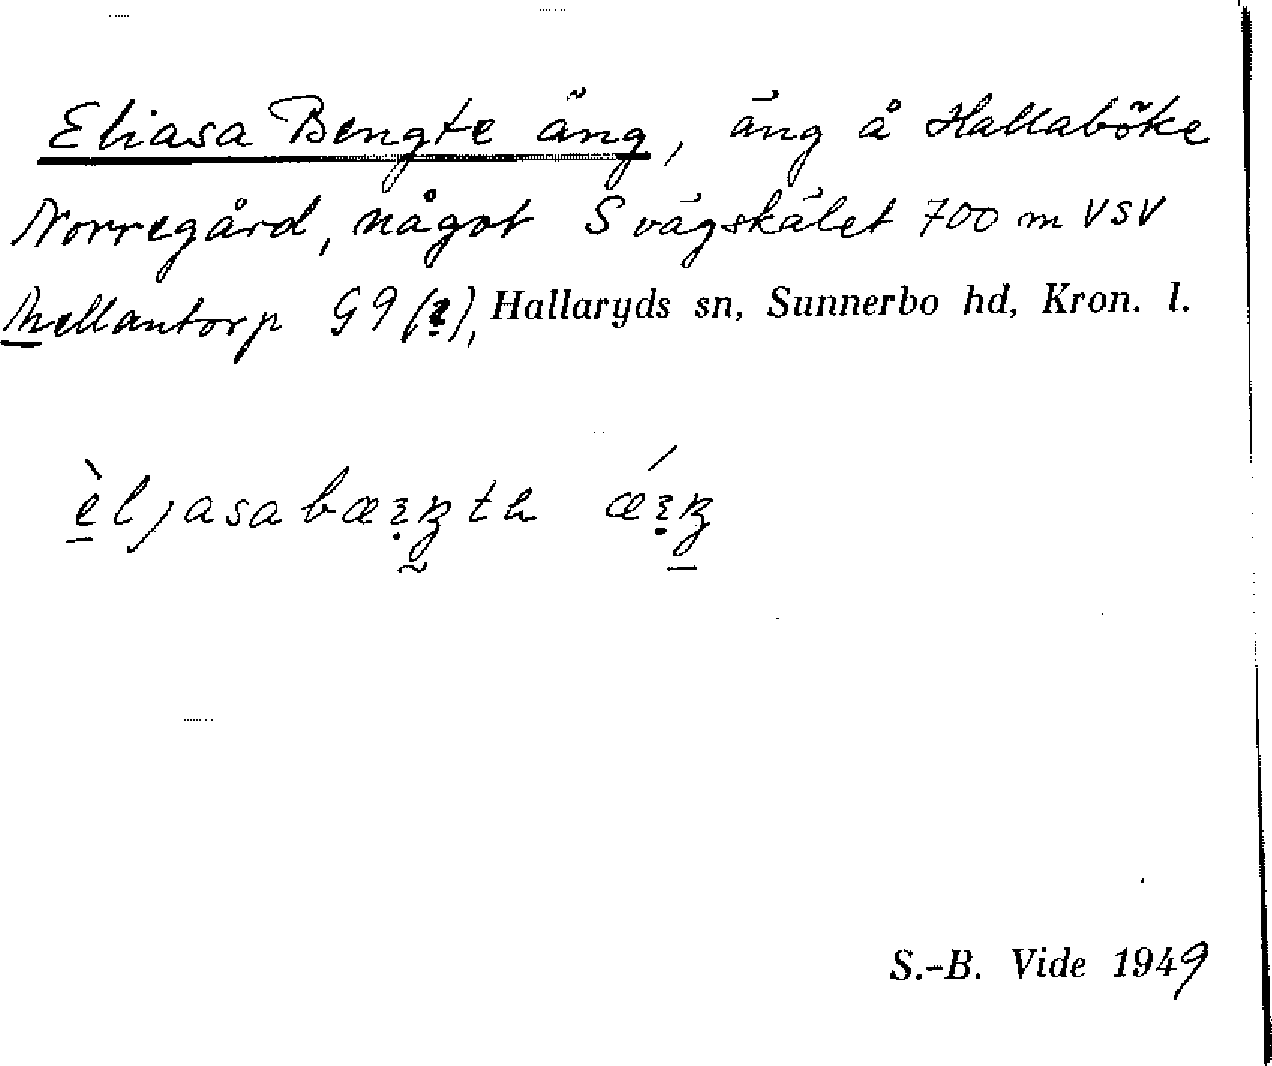 Eliasa Bengte äng, äng å Hallaböke
Norregård, något S vägskälet 700 m VSV
Mellantorp G9 (2), Hallaryds sn, Sunnerbo hd, Kron. l.
S.-B. Vide 1949